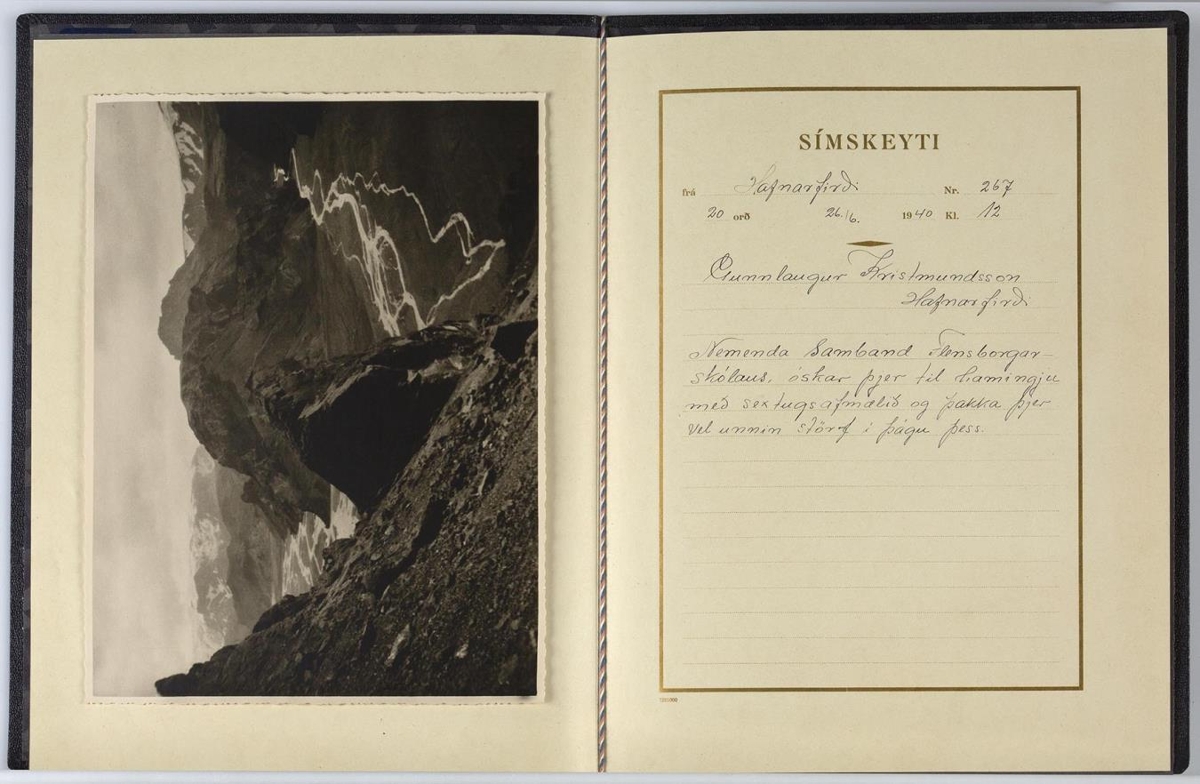 SÍMSKEYTI
frá Hafnarfirði Nr. 267
20 orð 26./6. 1940 Kl. 12
Gunnlaugur Kristmundsson
Hafnarfirði
Nemenda Samband Flensborgar-
skólans, óskar þjer til hamingju
með sextugsafmælið og þakka þjer
vel unnin störf í þágu þess.